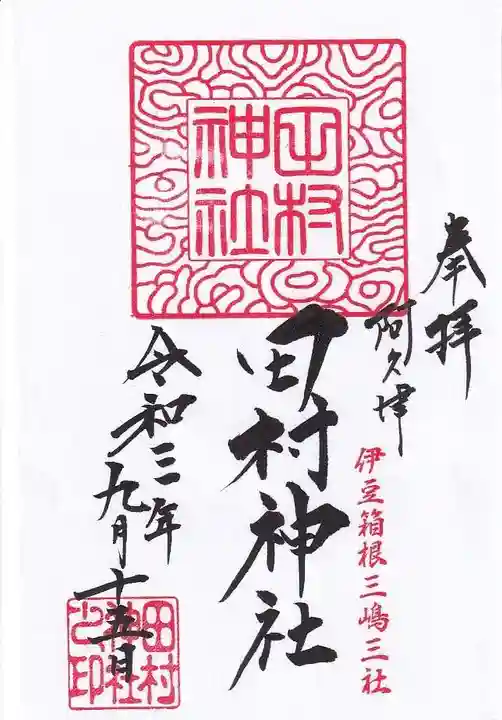 奉拝
阿久津
伊豆箱根三嶋三社
田村神社
田村神社
令和三年九月十五日
田村神社之印